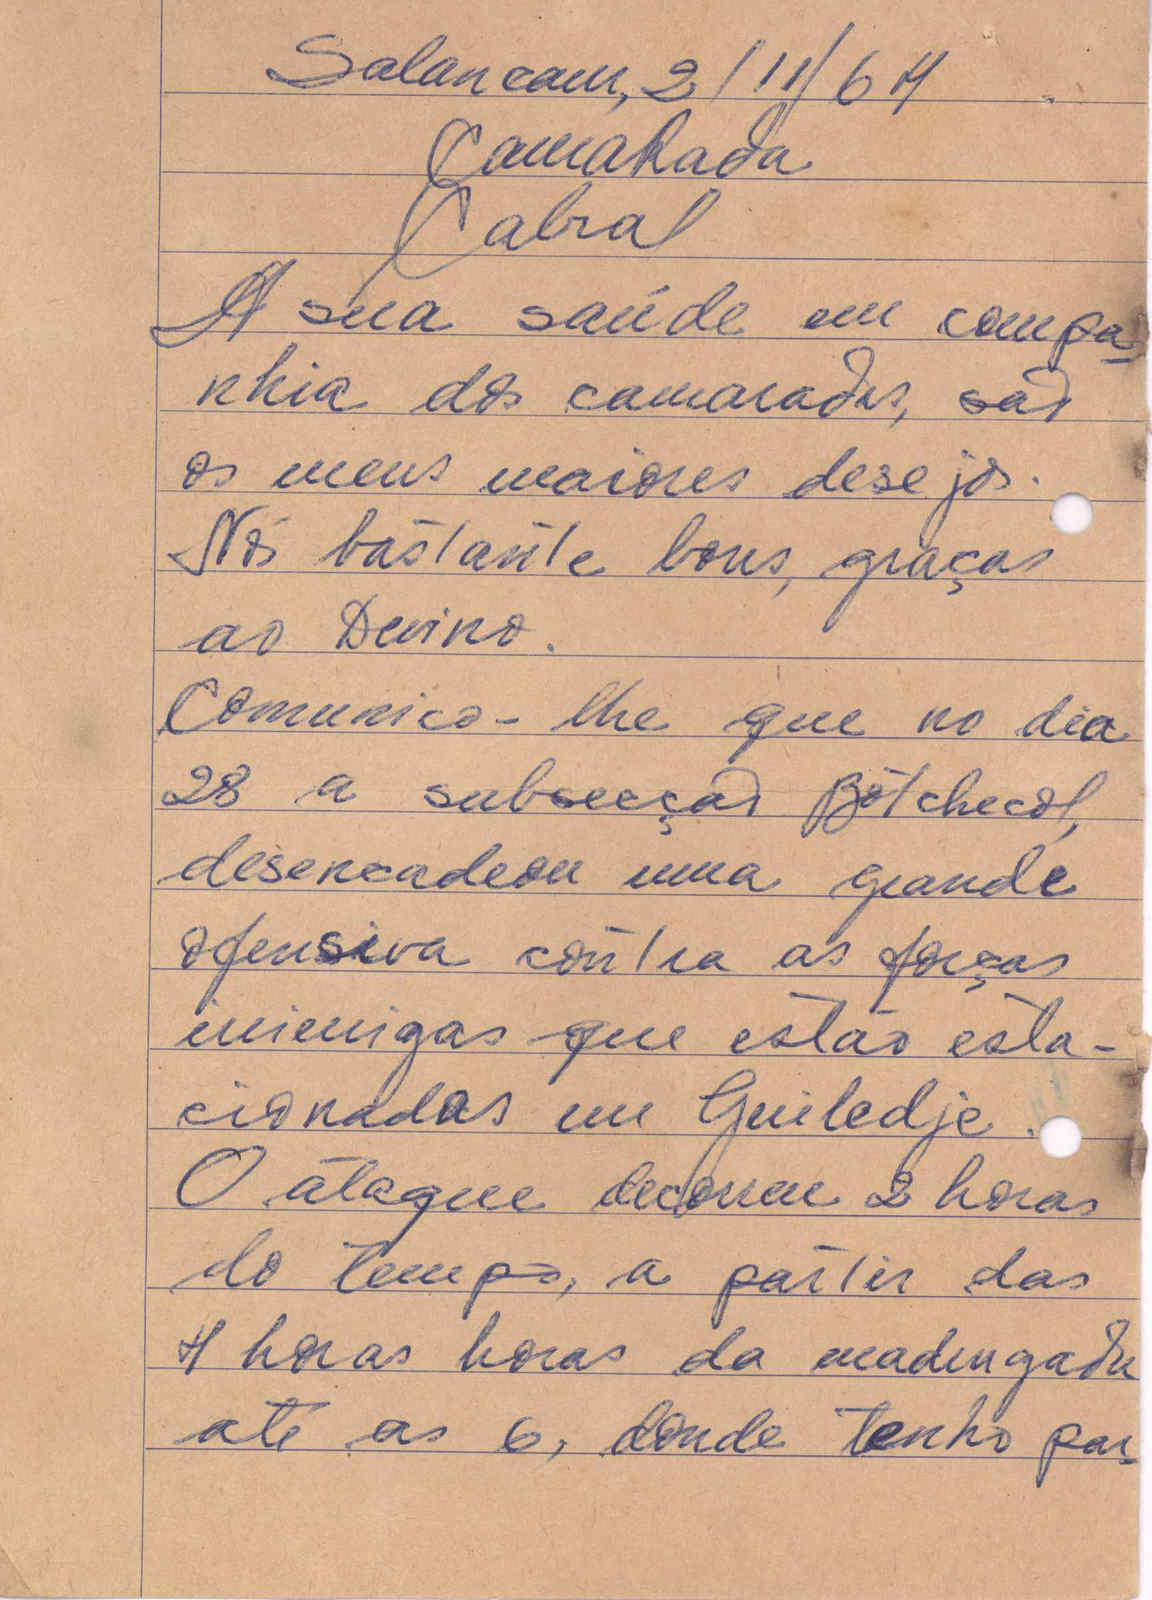 Salancaur, 2/11/64
Camarada
Cabral
A sua saúde em compa-
nhia dos camaradas, são
os meus maiores desejos.
Nós bastante bons, graças
ao Devino.
Comunico-lhe que no dia
28 a subsecção Bótchecól,
desencadeou uma grande
ofensiva contra as forças
inimigas que estão esta-
cionadas em Guiledje.
O ataque decorreu 2 horas
do tempo, a partir das
4 horas horas da madrugada
até as 6, donde tenho par-